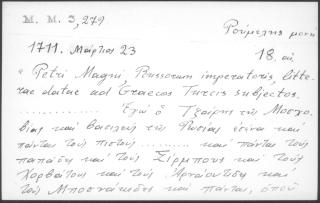 M. M. 3,279
Ρούμελης μονή
1711. Μάρτιος 23
18. αἰ.
" Petri Magni, Russorum imperatoris, litte-
rae datae ad Graecos Turcis subjectos.
.......... Ἐγὼ ὁ Τζαίρης τῆς Μοσχο-
βίας καὶ βασιλεὺς τῆς Ρωσίας καὶ
πάντας τοὺς πιστοὺς .......... καὶ πάντας τοὺς
παπάδες καὶ τοὺς Σέρμπους καὶ τοὺς
Χορβάτους καὶ τοὺς Ἀρναούτιδες καὶ
τοὺς Μποσνάκιδες καὶ πάντας, ὁποῦ